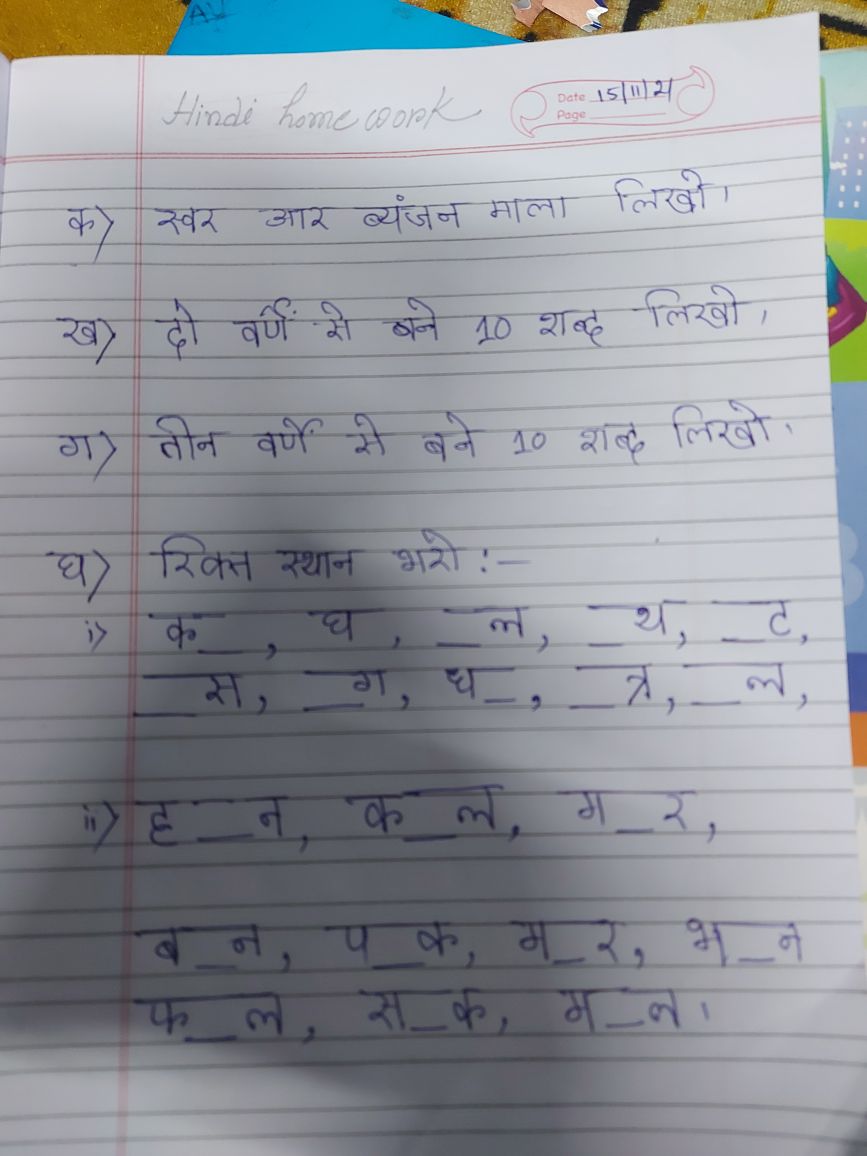 Hindi home coork
Date 15/11/21
Page
क) स्वर आर व्यंजन माला लिखो।
ख) दो वर्णें से बने 10 शब्द लिखो।
ग) तीन वर्णें से बने 10 शब्द लिखो।
घ) रिक्त स्थान भरो :-
i) क__, घ_, __ल, __थ, __ट,
__स, __ग, ध__, __त्र, __ल,
ii) ह__न, क__ल, ग__र,
ब__न, प__क, म__र, भ__न
फ__ल, स__क, म__न।